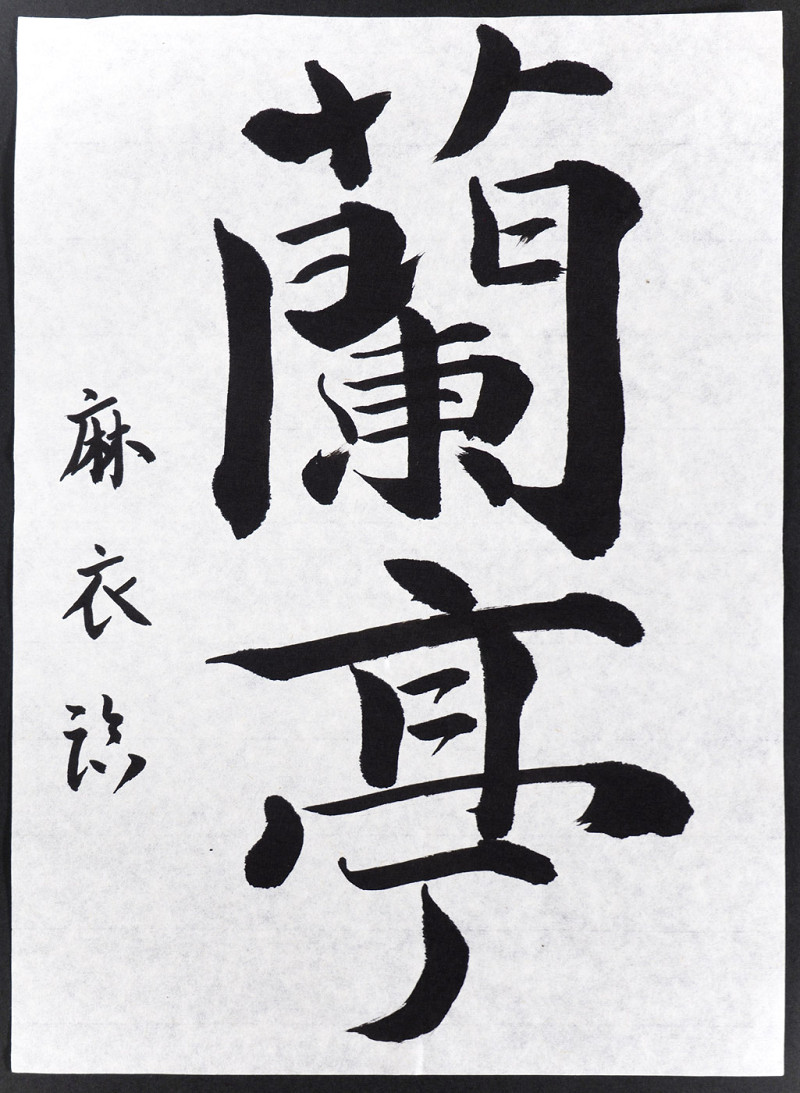 蘭亭
麻衣臨